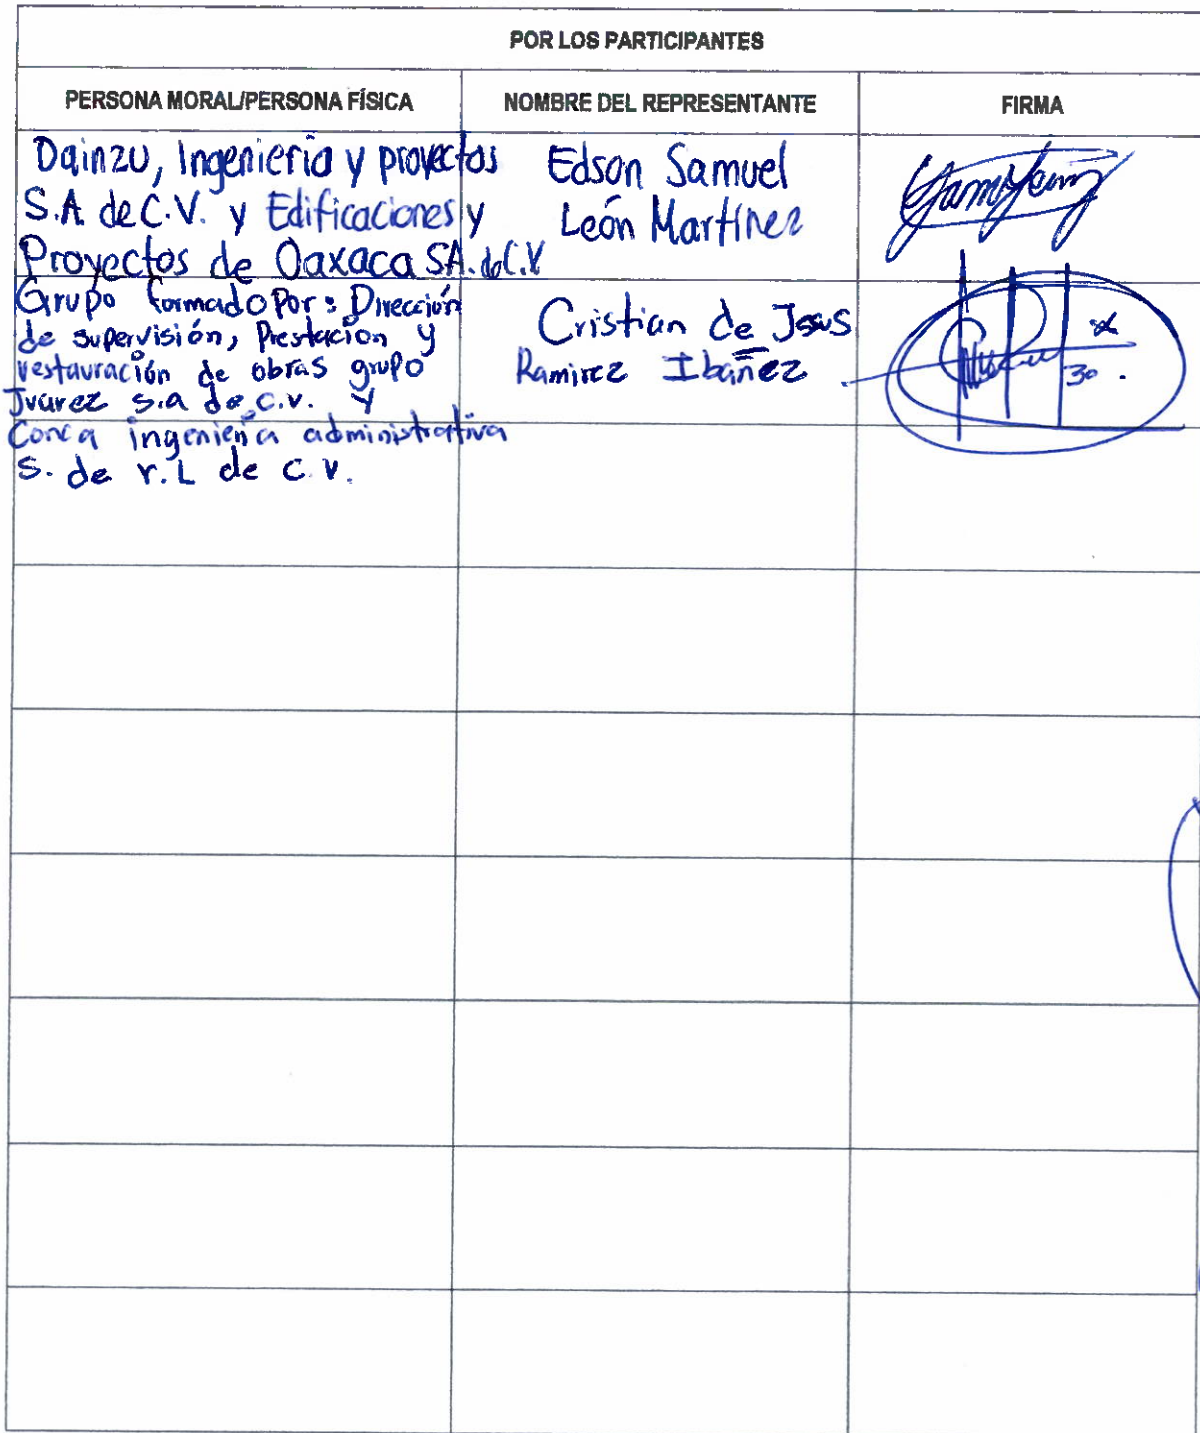 POR LOS PARTICIPANTES
PERSONA MORAL/PERSONA FÍSICA NOMBRE DEL REPRESENTANTE FIRMA
Dainzu, Ingeniería y proyectos
S.A de C.V. y Edificaciones y
Proyectos de Oaxaca S.A. de C.V
Edson Samuel
León Martínez
Grupo formado Por: Dirección
de supervisión, Prestación y
restauración de obras grupo
Juarez s.a de c.v. y
Conca ingeniería administrativa
S. de r.L de c.v.
Cristian de Jesus
Ramirez Ibañez
30